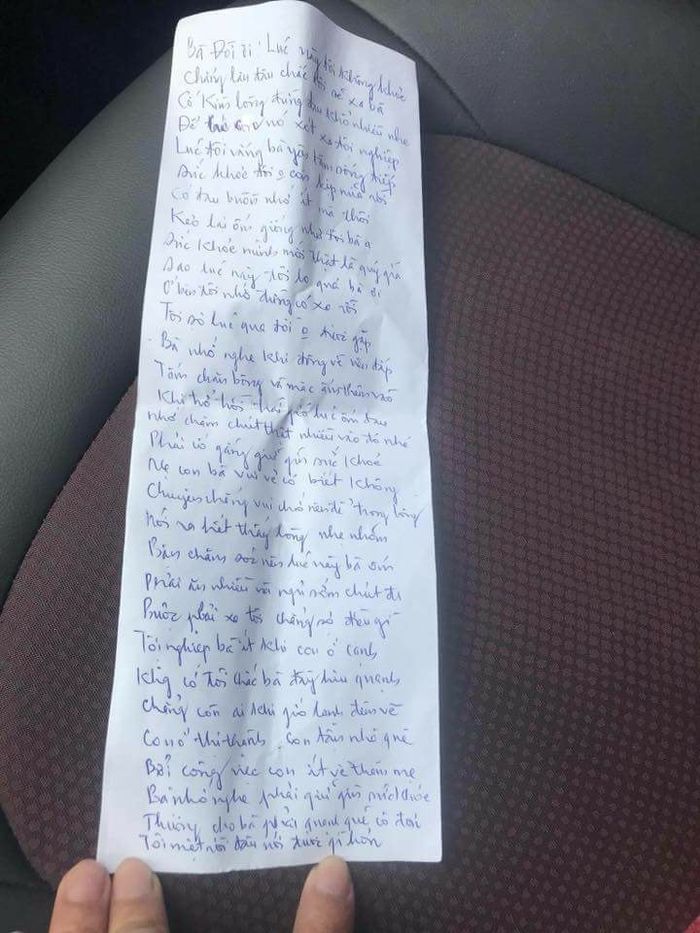 Bà Đời ơi! Lúc này tôi không khỏe
Chẳng lâu đâu chắc tôi sẽ xa bà
Có kìm lòng đừng đau khổ nhiều nhe
Để nó xét xa tội nghiệp
Lúc tôi vắng bà yên tâm sống tiếp
Sức khỏe tôi o còn kịp nữa rồi
Có đau buồn nhớ ít mà thôi
Kẻo lại ốm giống như tôi bà ạ
Sức khỏe mình mới thật là quý giá
Sao lúc này tôi lo quá bà ơi
Ở bên tôi nhớ đừng có xa rời
Tôi sợ lúc qua đời o được gặp
Bà nhớ nghe khi đông về nên đắp
Tấm chăn bông và mặc ấm thêm vào
Khi trở lúc ốm đau
nhớ chăm chút thật nhiều vào đó nhé
Phải cố gắng giữ gìn sức khỏe
Mẹ con bà vui vẻ có biết không
Chuyện chẳng vui chớ nên để trong lòng
Nói ra hết thấy lòng nhẹ nhõm
Bận chăm sóc nên lúc này bà ốm
Phải ăn nhiều và ngủ sớm chút đi
Buộc phải xa tôi chẳng sợ điều gì
Tội nghiệp bà ít khi con ở cạnh
Khg có tôi chắc bà hiu quạnh
Chẳng còn ai khi gió lạnh đêm về
Con ở thị thành, con tận nhà quê
Bởi công việc con ít về thăm mẹ
Bà nhớ nghe phải giữ gìn sức khỏe
Thương cho bà phải quạnh quẽ cô đơn
Tôi mệt rồi đâu nói được gì hơn